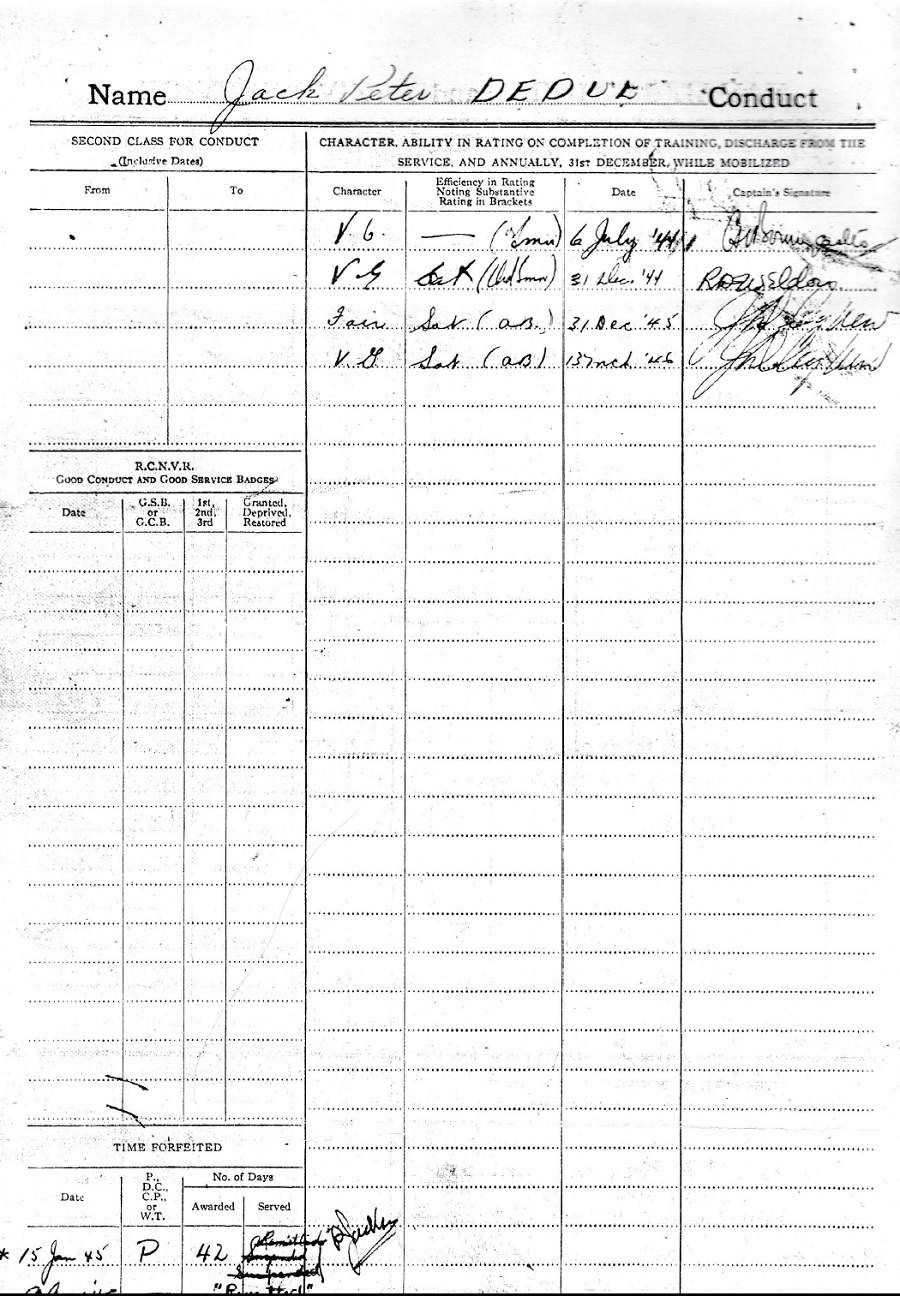 Name Jack Peter DEDUE Conduct
SECOND CLASS FOR CONDUCT
(Inclusive Dates)
From To
CHARACTER, ABILITY IN RATING ON COMPLETION OF TRAINING, DISCHARGE FROM THE
SERVICE, AND ANNUALLY, 31ST DECEMBER, WHILE MOBILIZED
Character Efficiency in Rating Date Captain's Signature
Noting Substantive
Rating in Brackets
V.G. — 6 July '44
V.G. 31 Dec. '44
Fair Sat (A.B.) 31 Dec '45
V.G Sat (AB) 13 Mch '46
R.C.N.V.R.
GOOD CONDUCT AND GOOD SERVICE BADGES
Date G.S.B. 1st, Granted,
or 2nd, Deprived,
G.C.B. 3rd Restored
TIME FORFEITED
Date P., No. of Days
D.C., Awarded Served
C.P.,
or
W.T.
* 15 Jan 45 P 42
Suspended
"Remitted"